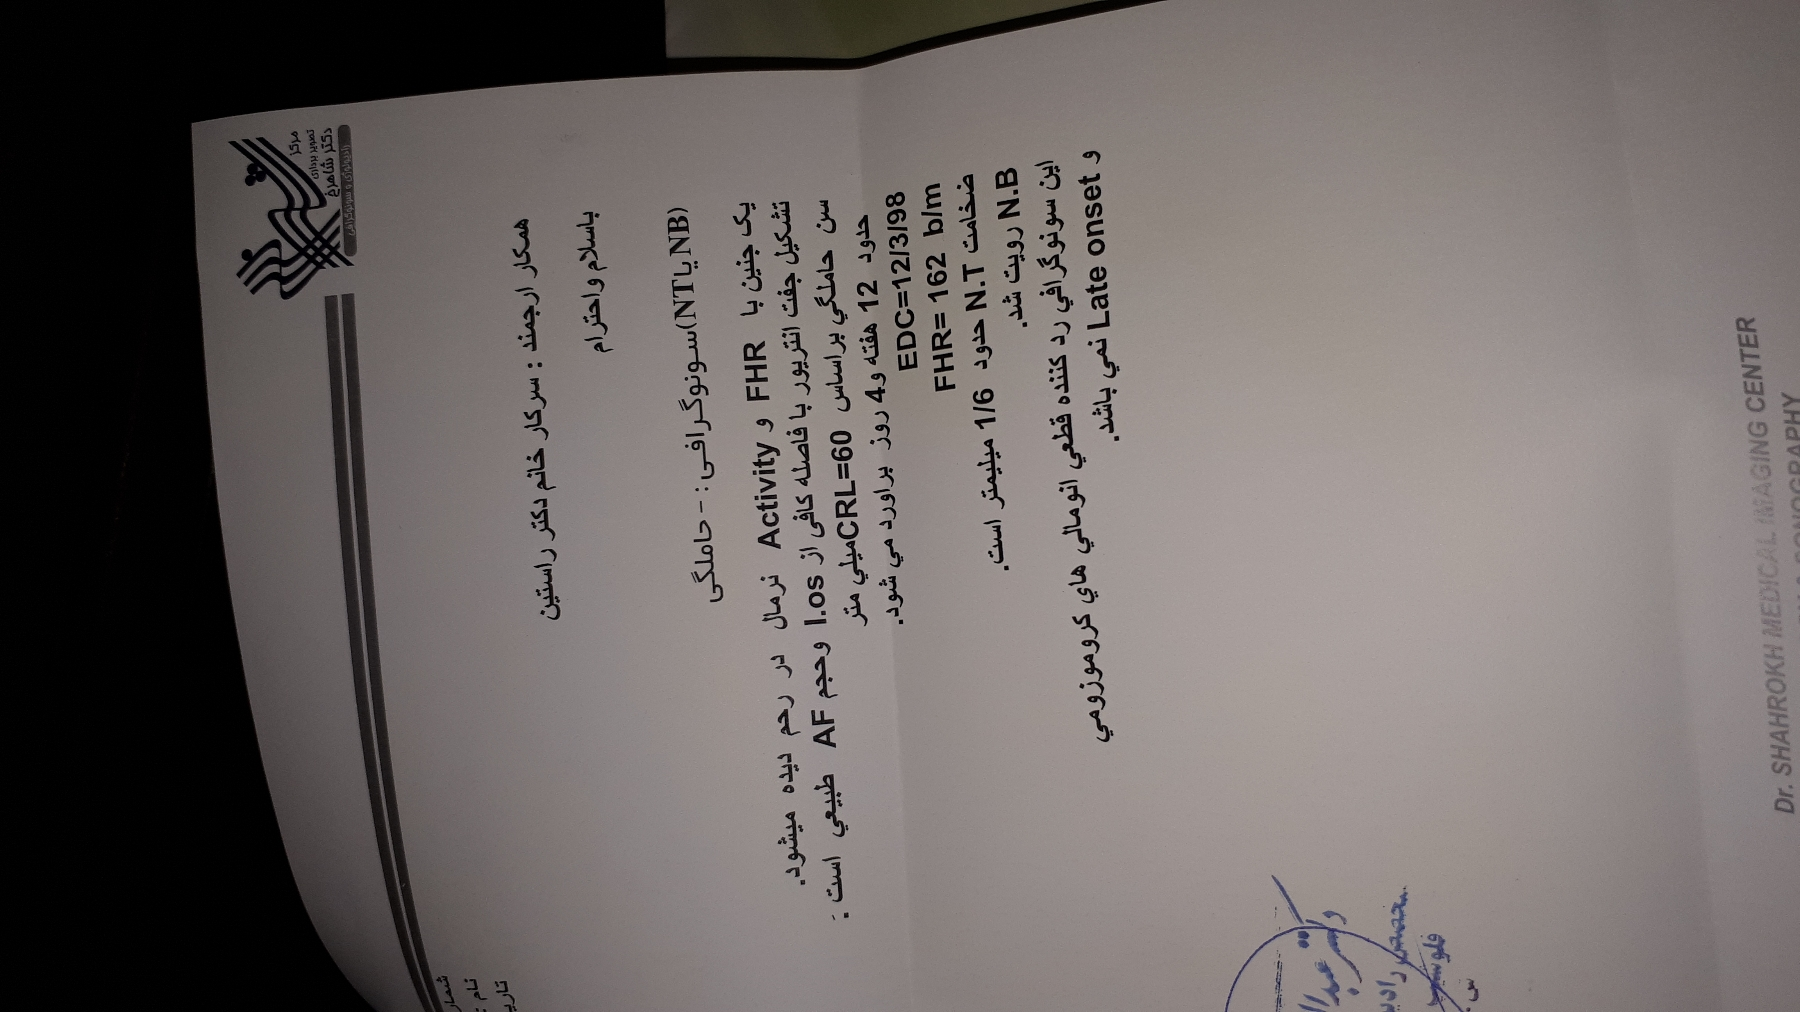 مرکز
تصویربرداری
دکتر شاهرخ
رادیولوژی و سونوگرافی
شمار
نام :
تاری
همکار ارجمند : سرکار خانم دکتر راستین
باسلام واحترام
سونوگرافی : - حاملگی (NT یا NB)
یک جنین با FHR و Activity نرمال در رحم دیده میشود.
تشکیل جفت انتریور با فاصله کافی از I.os وحجم AF طبیعي است :
سن حاملگي براساس CRL=60میلي متر
حدود 12 هفته و4 روز براورد مي شود.
EDC=12/3/98
FHR= 162 b/m
ضخامت N.T حدود 1/6 میلیمتر است.
N.B رویت شد.
این سونوگرافي رد کننده قطعي انومالي هاي کروموزومي
و Late onset نمي باشد.
Dr. SHAHROKH MEDICAL IMAGING CENTER
SONOGRAPHY